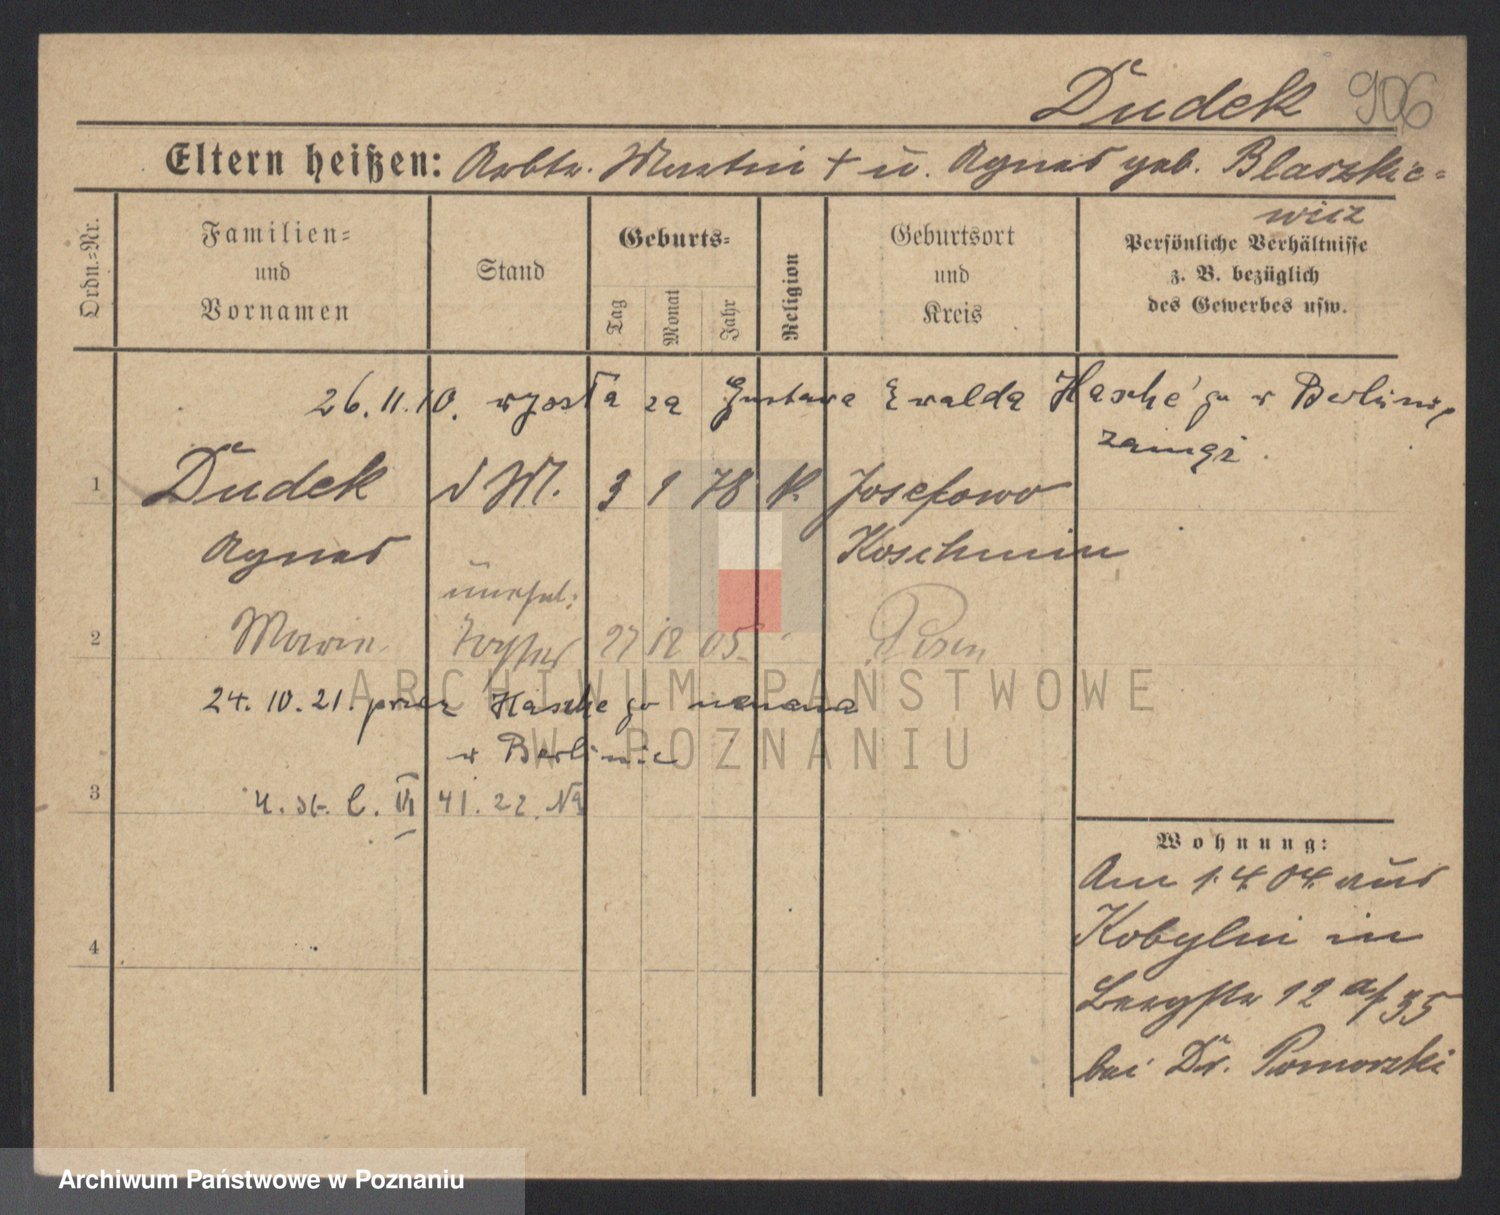 Dudek 906
Eltern heißen: Arbtr. Martin + u. Agnes geb. Blaszkie=
wicz
Ordn.=Nr.
Familien=
und
Vornamen
Stand
Geburts=
Tag
Monat
Jahr
Religion
Geburtsort
und
Kreis
Persönliche Verhältnisse
z. B. bezüglich
des Gewerbes usw.
26.11.10. wyszła za Gustawa Ewalda Hasche'go w Berlinie
zamąż.
1 Dudek d M. 3 1 78 k. Josefowo
Agnes Koschmin
unehel.
2 Marie Tochter 27 12 05 Posen
24.10.21. przez Haschego uznana
w Berlinie
3 U. St. C. VI 41.22.
4
Wohnung:
Am 1.4.04. aus
Kobylin in
Bergstr 12 35
bei Dr. Pomorski
ARCHIWUM PAŃSTWOWE
W POZNANIU
Archiwum Państwowe w Poznaniu